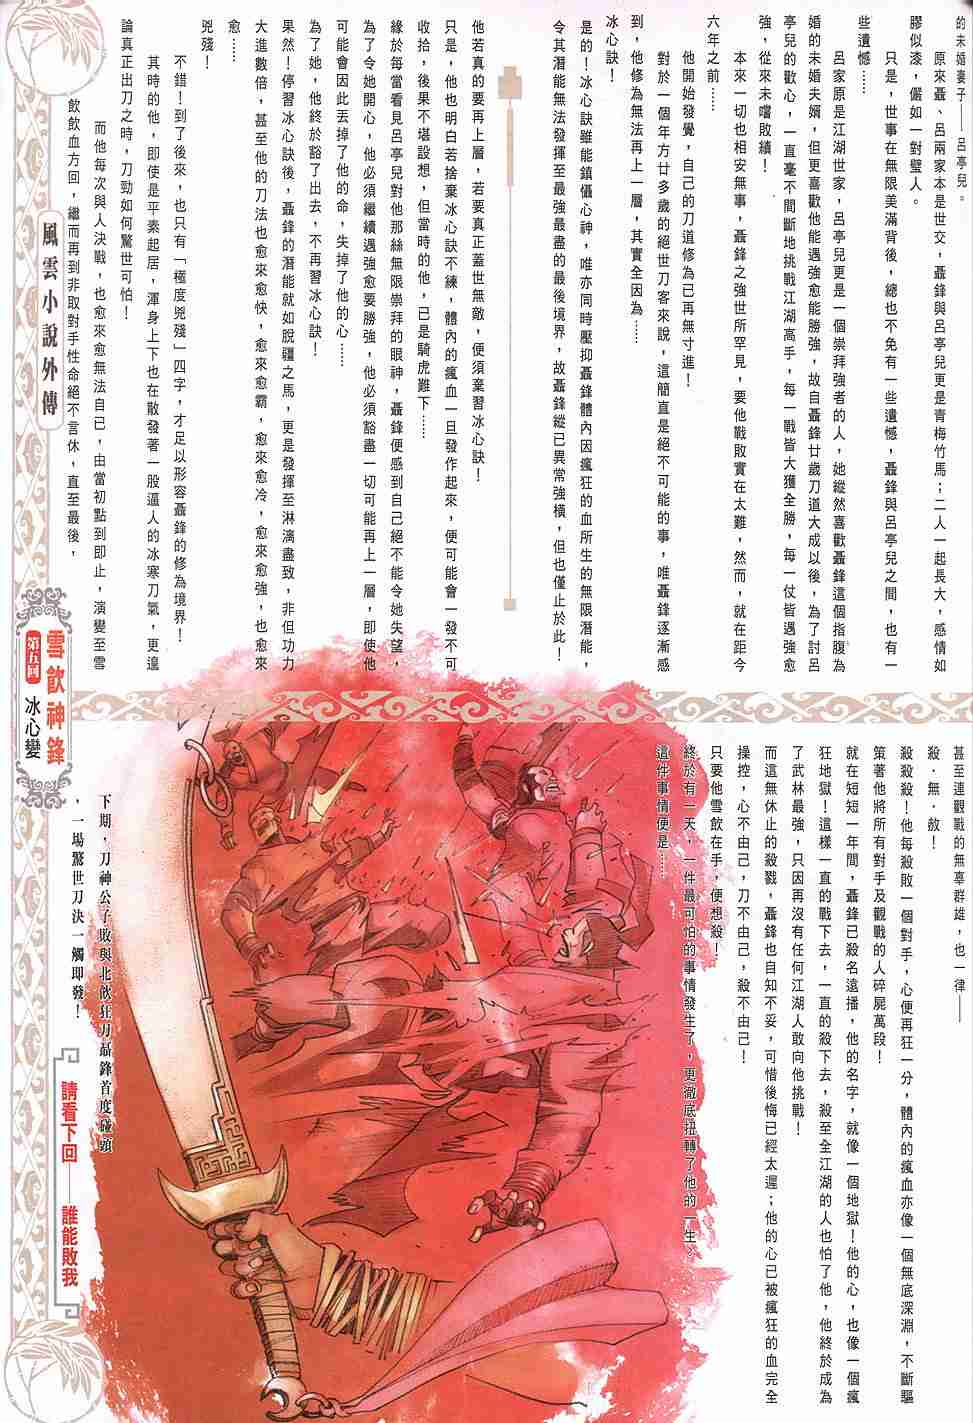 的未婚妻子——呂亭兒。
原來聶、呂兩家本是世交，聶鋒與呂亭兒更是青梅竹馬；二人一起長大，感情如
膠似漆，儼如一對璧人。
只是，世事在無限美滿背後，總也不免有一些遺憾，聶鋒與呂亭兒之間，也有一
些遺憾……
呂家原是江湖世家，呂亭兒更是一個崇拜強者的人，她縱然喜歡聶鋒這個指腹為
婚的未婚夫婿，但更喜歡他能遇強愈能勝強，故自聶鋒廿歲刀道大成以後，為了討呂
亭兒的歡心，一直毫不間斷地挑戰江湖高手，每一戰皆大獲全勝，每一仗皆遇強愈
強，從來未嚐敗績！
本來一切也相安無事，聶鋒之強世所罕見，要他戰敗實在太難，然而，就在距今
六年之前……
他開始發覺，自己的刀道修為已再無寸進！
對於一個年方廿多歲的絕世刀客來說，這簡直是絕不可能的事，唯聶鋒逐漸感
到，他修為無法再上一層，其實全因為……
冰心訣！
是的！冰心訣雖能鎮懾心神，唯亦同時壓抑聶鋒體內因瘋狂的血所生的無限潛能，
令其潛能無法發揮至最強最盡的最後境界，故聶鋒縱已異常強橫，但也僅止於此！
他若真的要再上層，若要真正蓋世無敵，便須棄習冰心訣！
只是，他也明白若捨棄冰心訣不練，體內的瘋血一旦發作起來，便可能會一發不可
收拾，後果不堪設想，但當時的他，已是騎虎難下……
緣於每當看見呂亭兒對他那絲無限崇拜的眼神，聶鋒便感到自己絕不能令她失望，
為了令她開心，他必須繼續遇強愈要勝強，他必須豁盡一切可能再上一層，即使他
可能會因此丟掉了他的命，失掉了他的心……
為了她，他終於豁了出去，不再習冰心訣！
果然！停習冰心訣後，聶鋒的潛能就如脫疆之馬，更是發揮至淋漓盡致，非但功力
大進數倍，甚至他的刀法也愈來愈快，愈來愈霸，愈來愈冷，愈來愈強，也愈來
愈……
兇殘！
不錯！到了後來，也只有「極度兇殘」四字，才足以形容聶鋒的修為境界！
其時的他，即使是平素起居，渾身上下也在散發著一股逼人的冰寒刀氣，更遑
論真正出刀之時，刀勁如何驚世可怕！
而他每次與人決戰，也愈來愈無法自已，由當初點到即止，演變至雪
飲飲血方回，繼而再到非取對手性命絕不言休，直至最後，
風雲小說外傳
雪飲神鋒
第五回
冰心變
甚至連觀戰的無辜群雄，也一律——
殺．無．赦！
殺殺殺！他每殺敗一個對手，心便再狂一分，體內的瘋血亦像一個無底深淵，不斷驅
策著他將所有對手及觀戰的人碎屍萬段！
就在短短一年間，聶鋒已殺名遠播，他的名字，就像一個地獄！他的心，也像一個瘋
狂地獄！這樣一直的戰下去，一直的殺下去，殺至全江湖的人也怕了他，他終於成為
了武林最強，只因再沒有任何江湖人敢向他挑戰！
而這無休止的殺戮，聶鋒也自知不妥，可惜後悔已經太遲；他的心已被瘋狂的血完全
操控，心不由己，刀不由己，殺不由己！
只要他雪飲在手，便想殺！
終於有一天，一件最可怕的事情發生了，更徹底扭轉了他的一生。
這件事情便是……
下期，刀神公子敗與北飲狂刀聶鋒首度碰頭
，一場驚世刀決一觸即發！
請看下回——誰能敗我